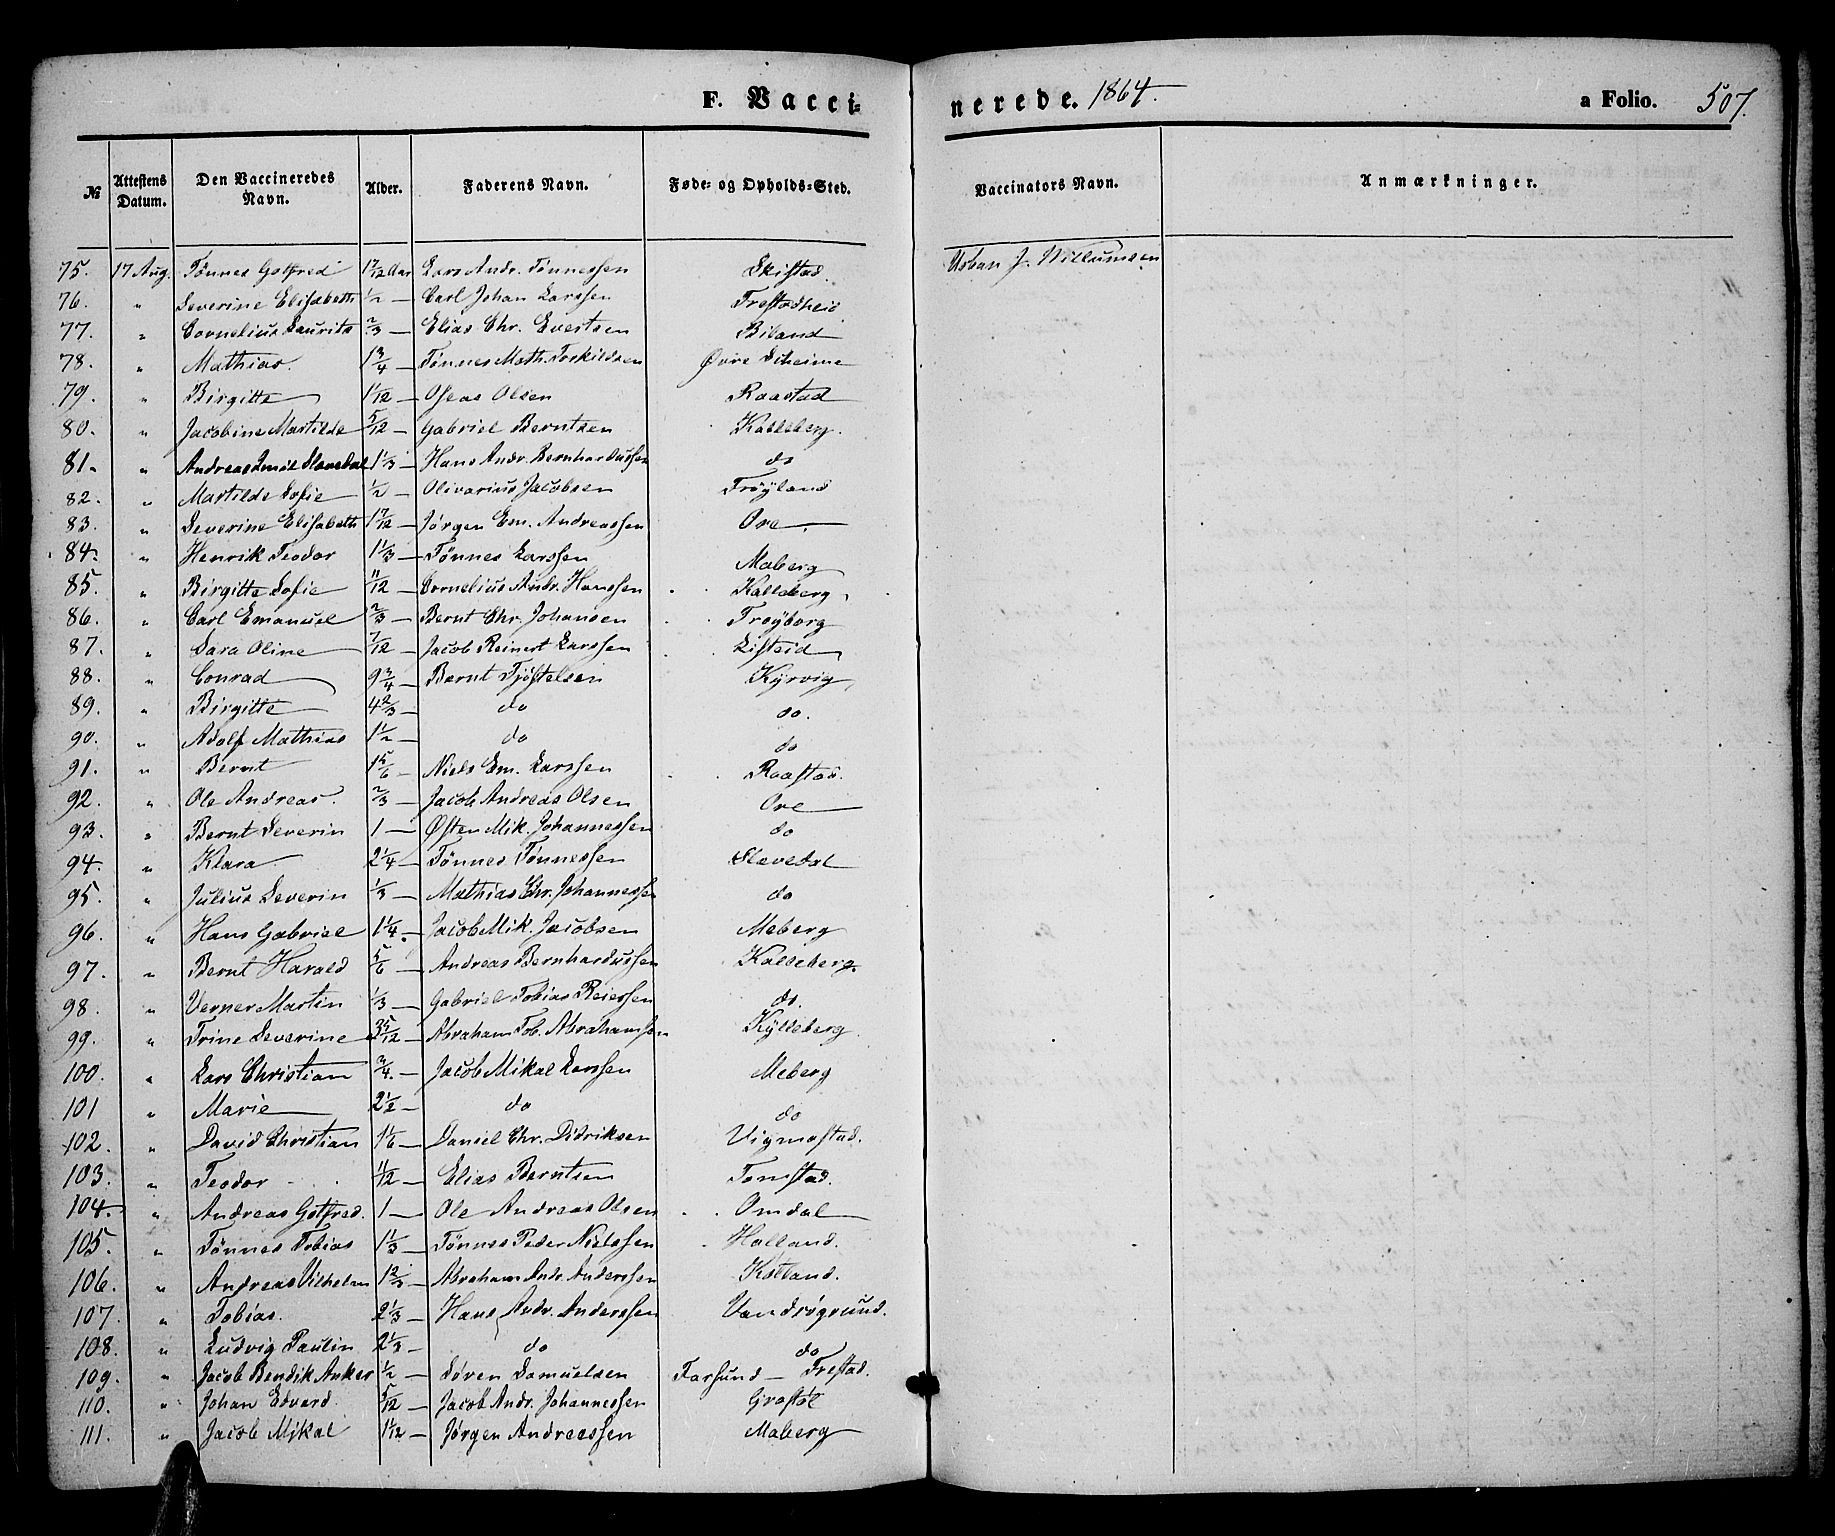 F. Vacci=
nerede. 1864.
a Folio. 507.
№ Attestens Datum. Den Vaccineredes Navn. Alder. Faderens Navn. Føde- og Opholds-Sted. Vaccinators Navn. Anmærkninger.
75. 17 Aug. Tønnes Gotfred 1 7/12 Aar Lars Andr. Tønnessen Skistad. Urban J. Willumsen
76. " Severine Elisabeth 1/2 — Carl Johan Larssen Frestadheid
77. " Cornelius Laurits 2/3 — Elias Chr. Evertsen Biland
78. " Mathias. 1 3/4 — Tønnes Math. Torkildsen Øvre
79. " Birgitte 1 1/12 — Oseas Olsen Raastad
80. " Jacobine Martilde 5/12 — Gabriel Berntsen Kalleberg.
81. " Andreas Slevedal 1 1/3 — Hans Andr. Bernhardussen do
82. " Martilde Sofie 1/2 — Olivarius Jacobsen Frøyland
83. " Severine Elisabeth 1 7/12 — Jørgen Em. Andreassen Ore
84. " Henrik Teodor 1 1/3 — Tønnes Larssen Maberg
85. " Birgitte Sofie 11/12 — Cornelius Andr. Hanssen Kalleberg
86. " Carl Emanuel 2/3 — Bernt Chr. Johansen Frøyborg
87. " Sara Oline 7/12 — Jacob Reinert Larssen Listeid
88. " Conrad 9 3/4 — Bernt Tjøstelsen Kjrvig
89. " Birgitte 4 2/3 — do do.
90. " Adolf Mathias 1 1/2 — do do
91. " Bernt 1 5/6 — Niels Em. Larssen Raastad.
92. " Ole Andreas. 2/3 — Jacob Andreas Olsen Ore
93. " Bernt Severin 1 — Østen Mik. Johannessen do
94. " Klara 2 1/4 — Tønnes Tønnessen Slevedal
95. " Julius Severin 1/3 — Mathias Chr. Johannessen do
96. " Hans Gabriel 1 1/4 — Jacob Mik. Jacobsen Meberg
97. " Bernt Harald 5/6 — Andreas Bernhardussen Kalleberg.
98. " Verner Martin 1/3 — Gabriel Tobias Reierssen do.
99. " Trine Severine 3 5/12 — Abraham Tob. Abrahamsen Kylleberg.
100. " Lars Christian 3/4 — Jacob Mikal Larssen Meberg
101 " Marie 2 1/2 — do do
102. " David Christian 1 1/6 — Daniel Chr. Didriksen Vigmostad.
103. " Teodor 11/12 — Elias Berntsen Tomstad.
104. " Andreas Gotfred. 1 — Ole Andreas Olsen Omdal
105. " Tønnes Tobias 1 1/3 — Tønnes Peder Nielssen Holland.
106. " Andreas Vilhelm 1 2/3 — Abraham Andr. Anderssen Kolland.
107. " Tobias. 2 1/3 — Hans Andr. Anderssen Vandrøgrund.
108. " Ludvig Paulin 2 1/3 — do do
109. " Jacob Bendik Anker 1/2 — Søren Samuelsen Farsund — Frestad.
110. " Johan Edvard. 5/12 — Jacob Andr. Johannessen Grostøl
111. " Jacob Mikal 1 1/12 — Jørgen Andreassen Maberg